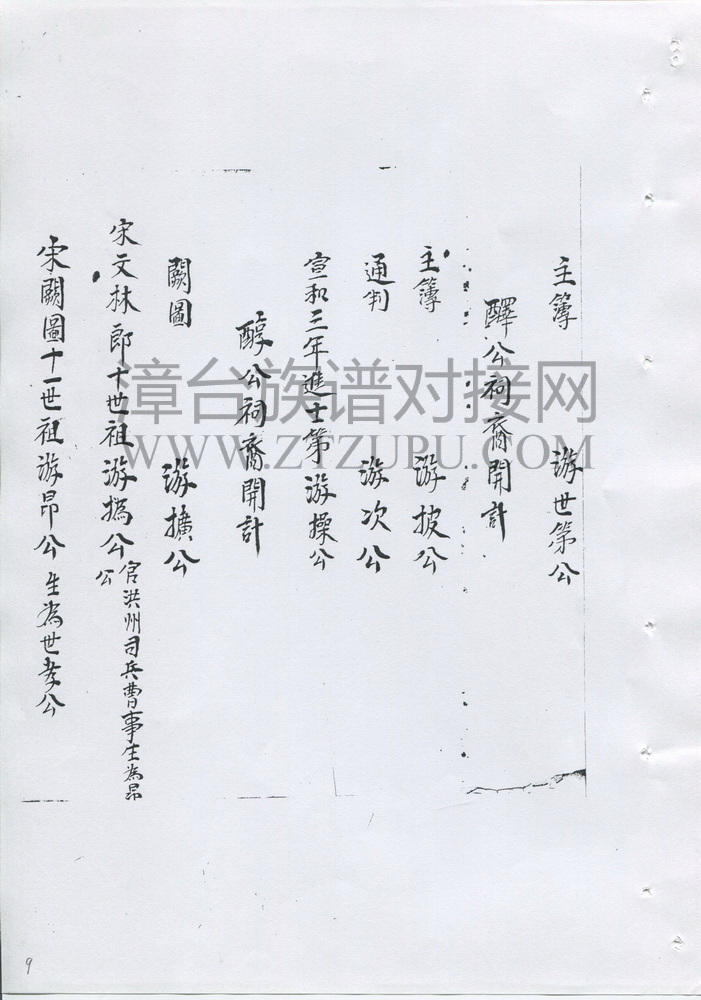 主簿 游世第公
醳公祠裔開計
主簿 游披公
通判 游次公
宣和三年進士第 游操公
醇公祠裔開計
闕圖 游擴公
宋文林郎十世祖游撝公 官洪州司兵曹事生為昂
公
宋闕圖十一世祖游昂公 生為世孝公
漳台族谱对接网
WWW.ZTZUPU.COM
9